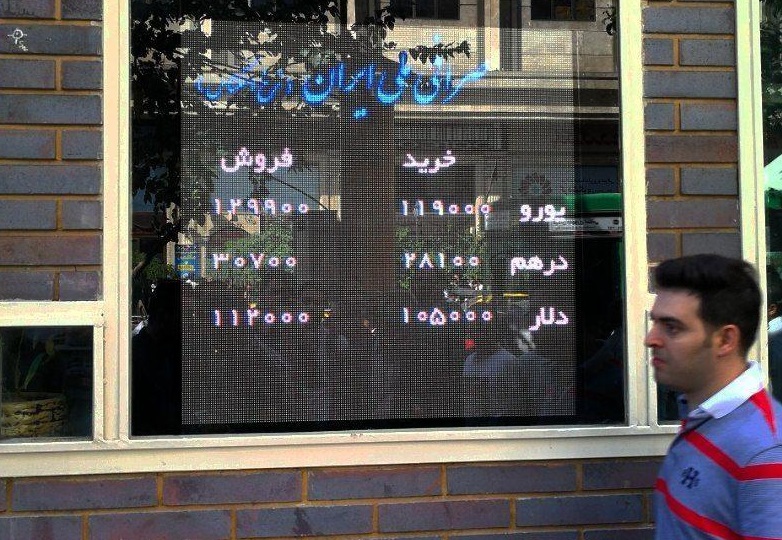 صرافی ملی ایران
خرید فروش
یورو ۱۱۹۰۰۰ ۱۲۹۹۰۰
درهم ۲۸۱۰۰ ۳۰۷۰۰
دلار ۱۰۵۰۰۰ ۱۱۲۰۰۰